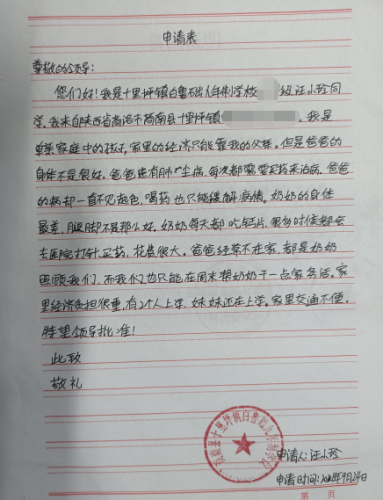 申请表
尊敬的领导:
您们好!我是十里坪镇白鲁础九年制学校 级汪小珍同
学,我来自陕西省商洛市商南县十里坪镇 ,我是
单亲家庭中的孩子,家里的经济只能靠我的父亲。但是爸爸的
身体不是很好。爸爸患有肺 病,每次都需要买药来治病,爸爸
的病却一直不见起色,喝药也只能缓解病情。奶奶的身体
最差,腿脚不是那么好。奶奶每天都吃钙片,很多时候都会
去医院打针买药,花费很大。爸爸经常不在家,都是奶奶
照顾我们,而我们也只能在周末帮奶奶干一点家务活。家
里经济负担很重,有2个人上学,妹妹还在上学。家里交通不便。
希望领导批准!
此致
敬礼
商南县十里坪镇白鲁础九年制学校
申请人:汪小珍
申请时间: 年9月 日
第 页